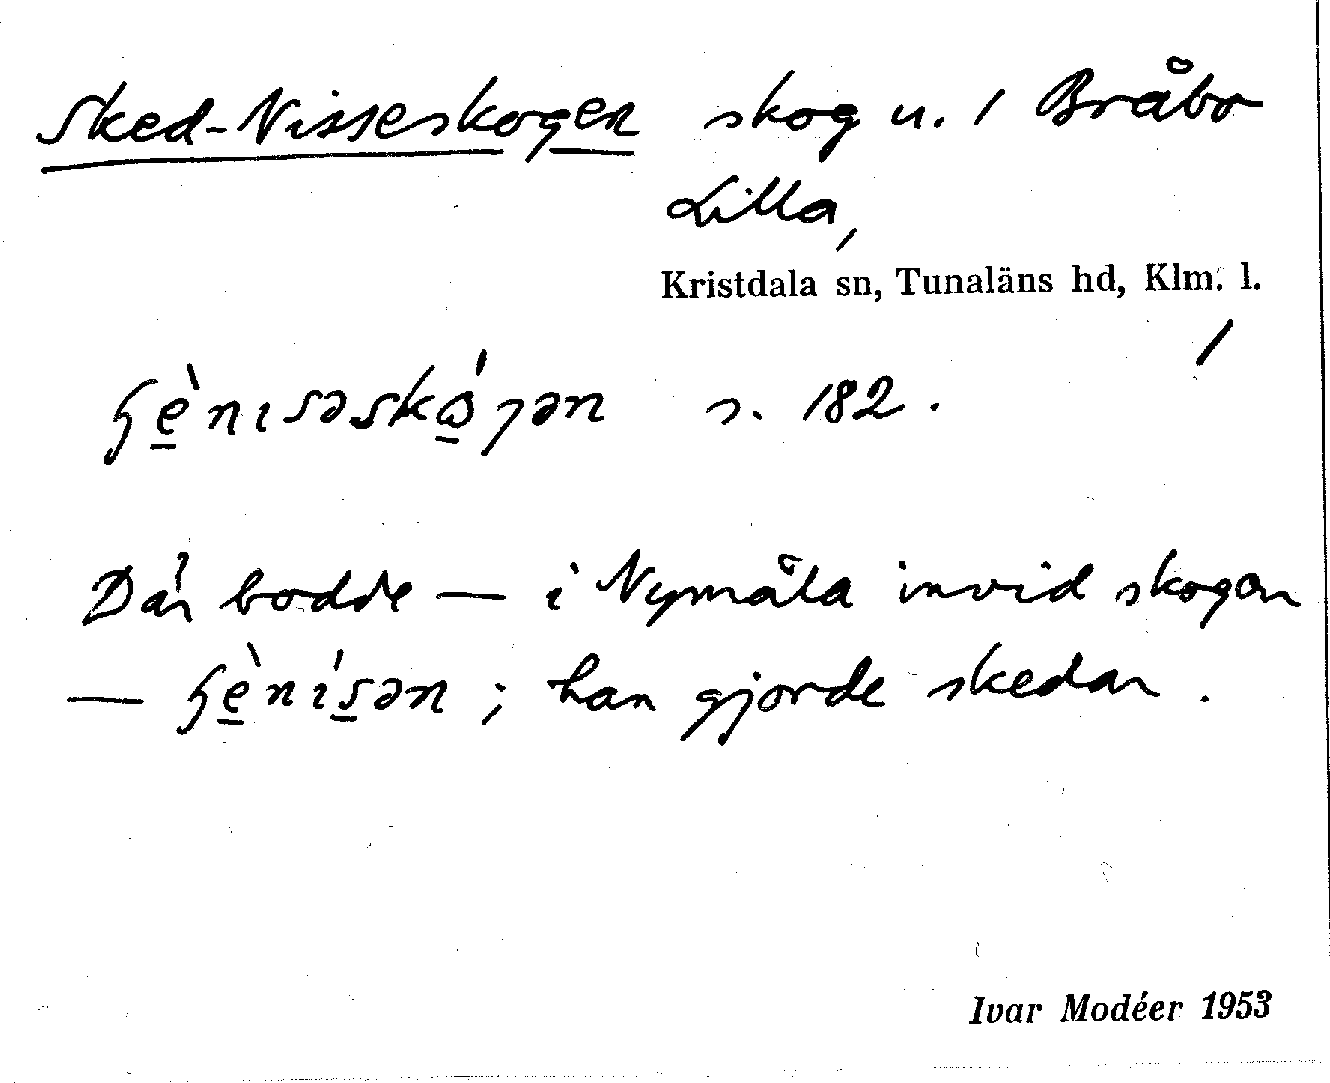 Sked-Nisseskogen skog u. 1 Bråbo
Lilla,
Kristdala sn, Tunaläns hd, Klm. l.
s. 182.
Där bodde — i Nymåla invid skogen
— ; han gjorde skedar.
Ivar Modéer 1953